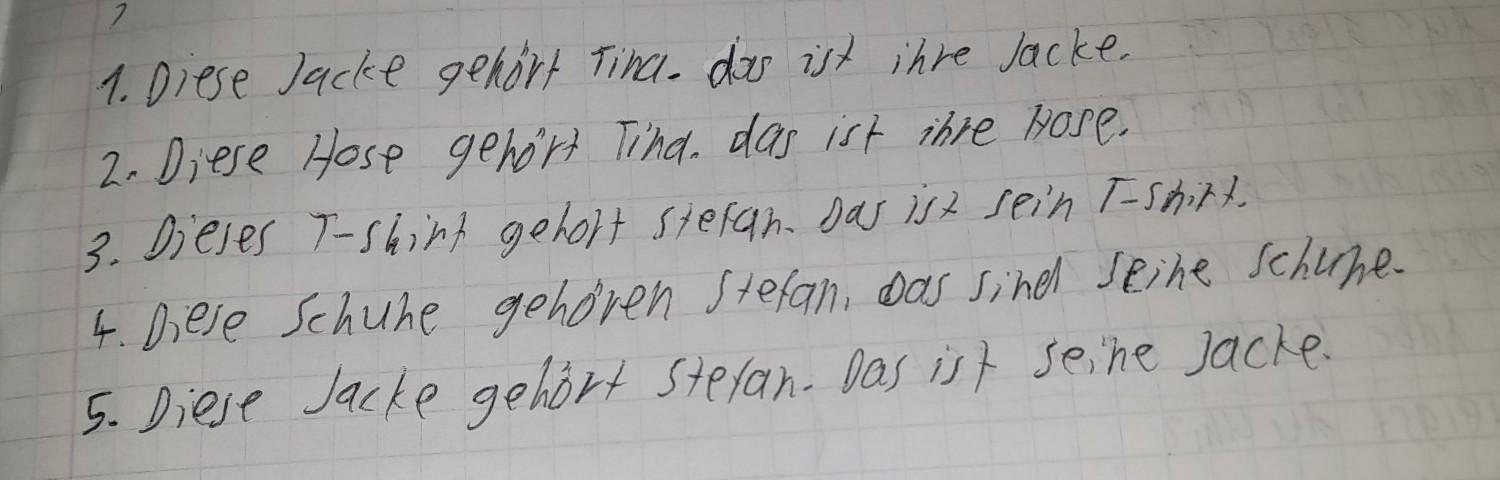 1. Diese Jacke gehört Tina. das ist ihre Jacke.
2. Diese Hose gehört Tina. das ist ihre Hose.
3. Dieses T-shirt gehort stefan. Das ist sein T-shirt.
4. Diese Schuhe gehören stefan. Das sind seine schuhe.
5. Diese Jacke gehört stefan. Das ist seine Jacke.